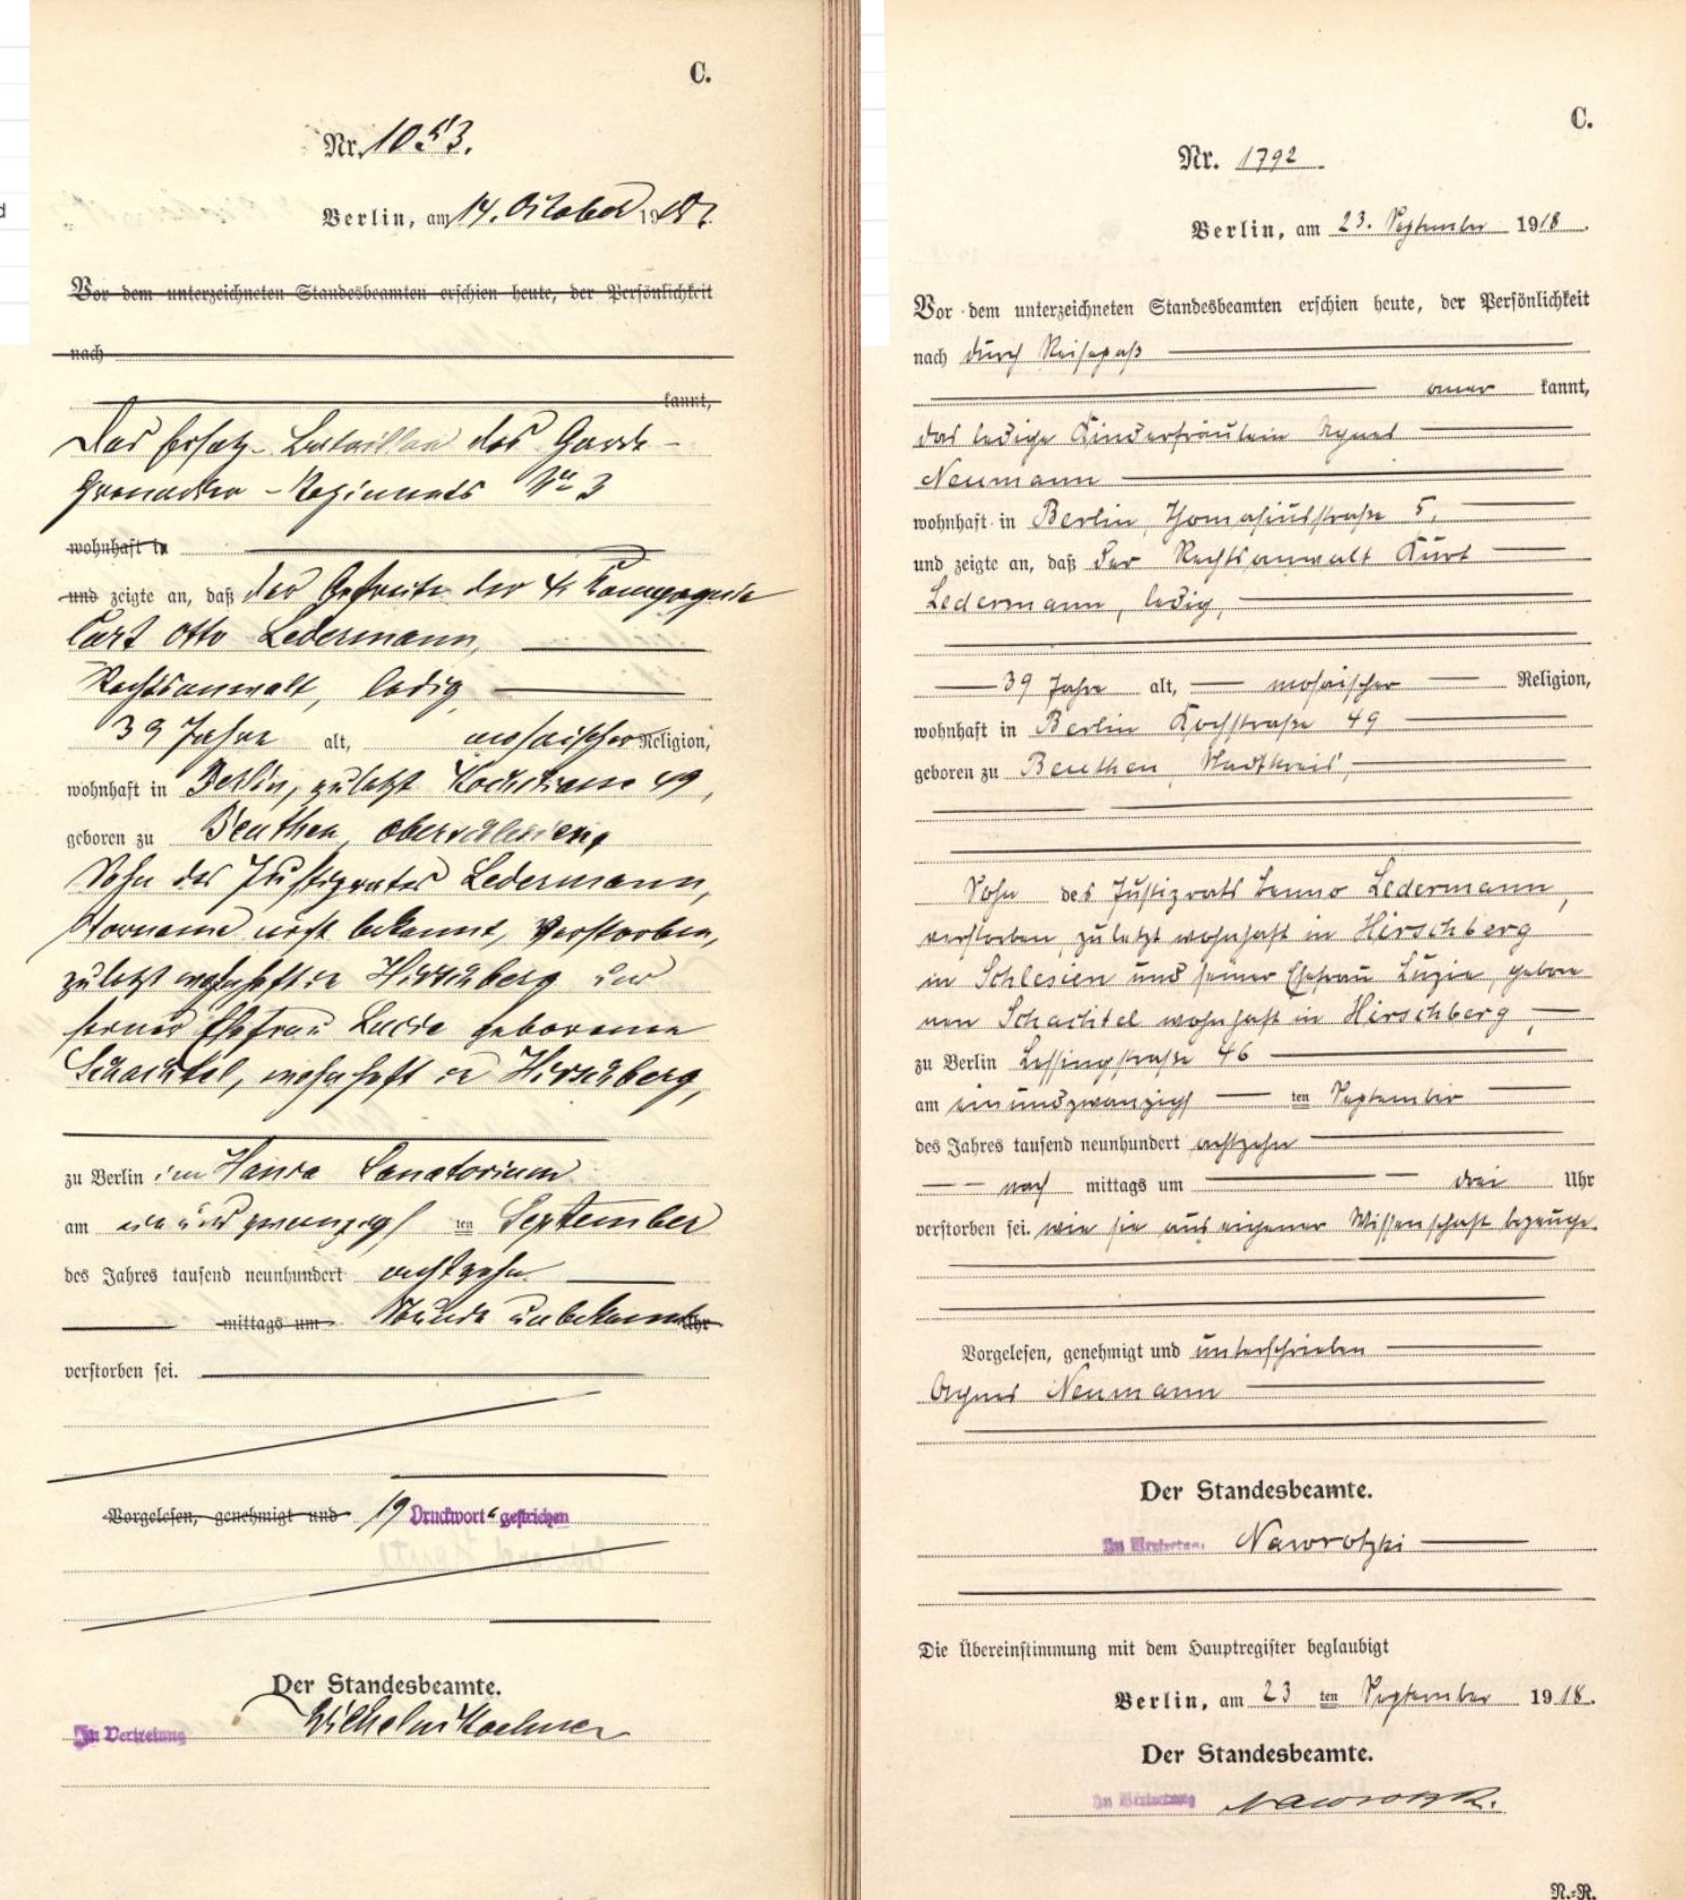 C.
Nr. 1053.
Berlin, am 14. October 1918.
Vor dem unterzeichneten Standesbeamten erschien heute, der Persönlichkeit
nach
kannt,
Das Ersatz-Bataillon des Garde-
Grenadier-Regiments No 3
wohnhaft in
und zeigte an, daß der Gefreite der 4. Kompagnie
Curt Otto Ledermann,
Rechtsanwalt, ledig
39 Jahre alt, mosaischer Religion,
wohnhaft in Berlin, zuletzt Kochstrasse 49,
geboren zu Beuthen Oberschlesien,
Sohn des Justizrates Ledermann,
Vorname nicht bekannt, verstorben,
zuletzt wohnhaft in Hirschberg und
seiner Ehefrau Lucie geborenen
Schachtel, wohnhaft in Hirschberg,
zu Berlin im Hansa Sanatorium
am ein und zwanzigsten September
des Jahres tausend neunhundert achtzehn
mittags um Stunde unbekannt Uhr
verstorben sei.
Vorgelesen, genehmigt und 19 Druckworte gestrichen
Der Standesbeamte.
In Vertretung Wilhelm
C.
Nr. 1792
Berlin, am 23. September 1918.
Vor dem unterzeichneten Standesbeamten erschien heute, der Persönlichkeit
nach durch Reisepaß
aner kannt,
das ledige Kinderfräulein Agnes
Neumann
wohnhaft in Berlin, Thomasiusstraße 5,
und zeigte an, daß der Rechtsanwalt Kurt
Ledermann, ledig,
39 Jahre alt, mosaischer Religion,
wohnhaft in Berlin Kochstraße 49
geboren zu Beuthen, Stadtkreis,
Sohn des Justizrats Benno Ledermann,
verstorben, zuletzt wohnhaft in Hirschberg
in Schlesien und seiner Ehefrau Luzie, gebore
nen Schachtel wohnhaft in Hirschberg,
zu Berlin Lessingstraße 46
am einundzwanzigsten September
des Jahres tausend neunhundert achtzehn
nach mittags um drei Uhr
verstorben sei. wie sie aus eigener Wissenschaft bezeuge.
Vorgelesen, genehmigt und unterschrieben
Agnes Neumann
Der Standesbeamte.
In Vertretung Nawrotzki
Die Übereinstimmung mit dem Hauptregister beglaubigt
Berlin, am 23 ten September 1918.
Der Standesbeamte.
In Vertretung Nawrotzki.
N.-R.